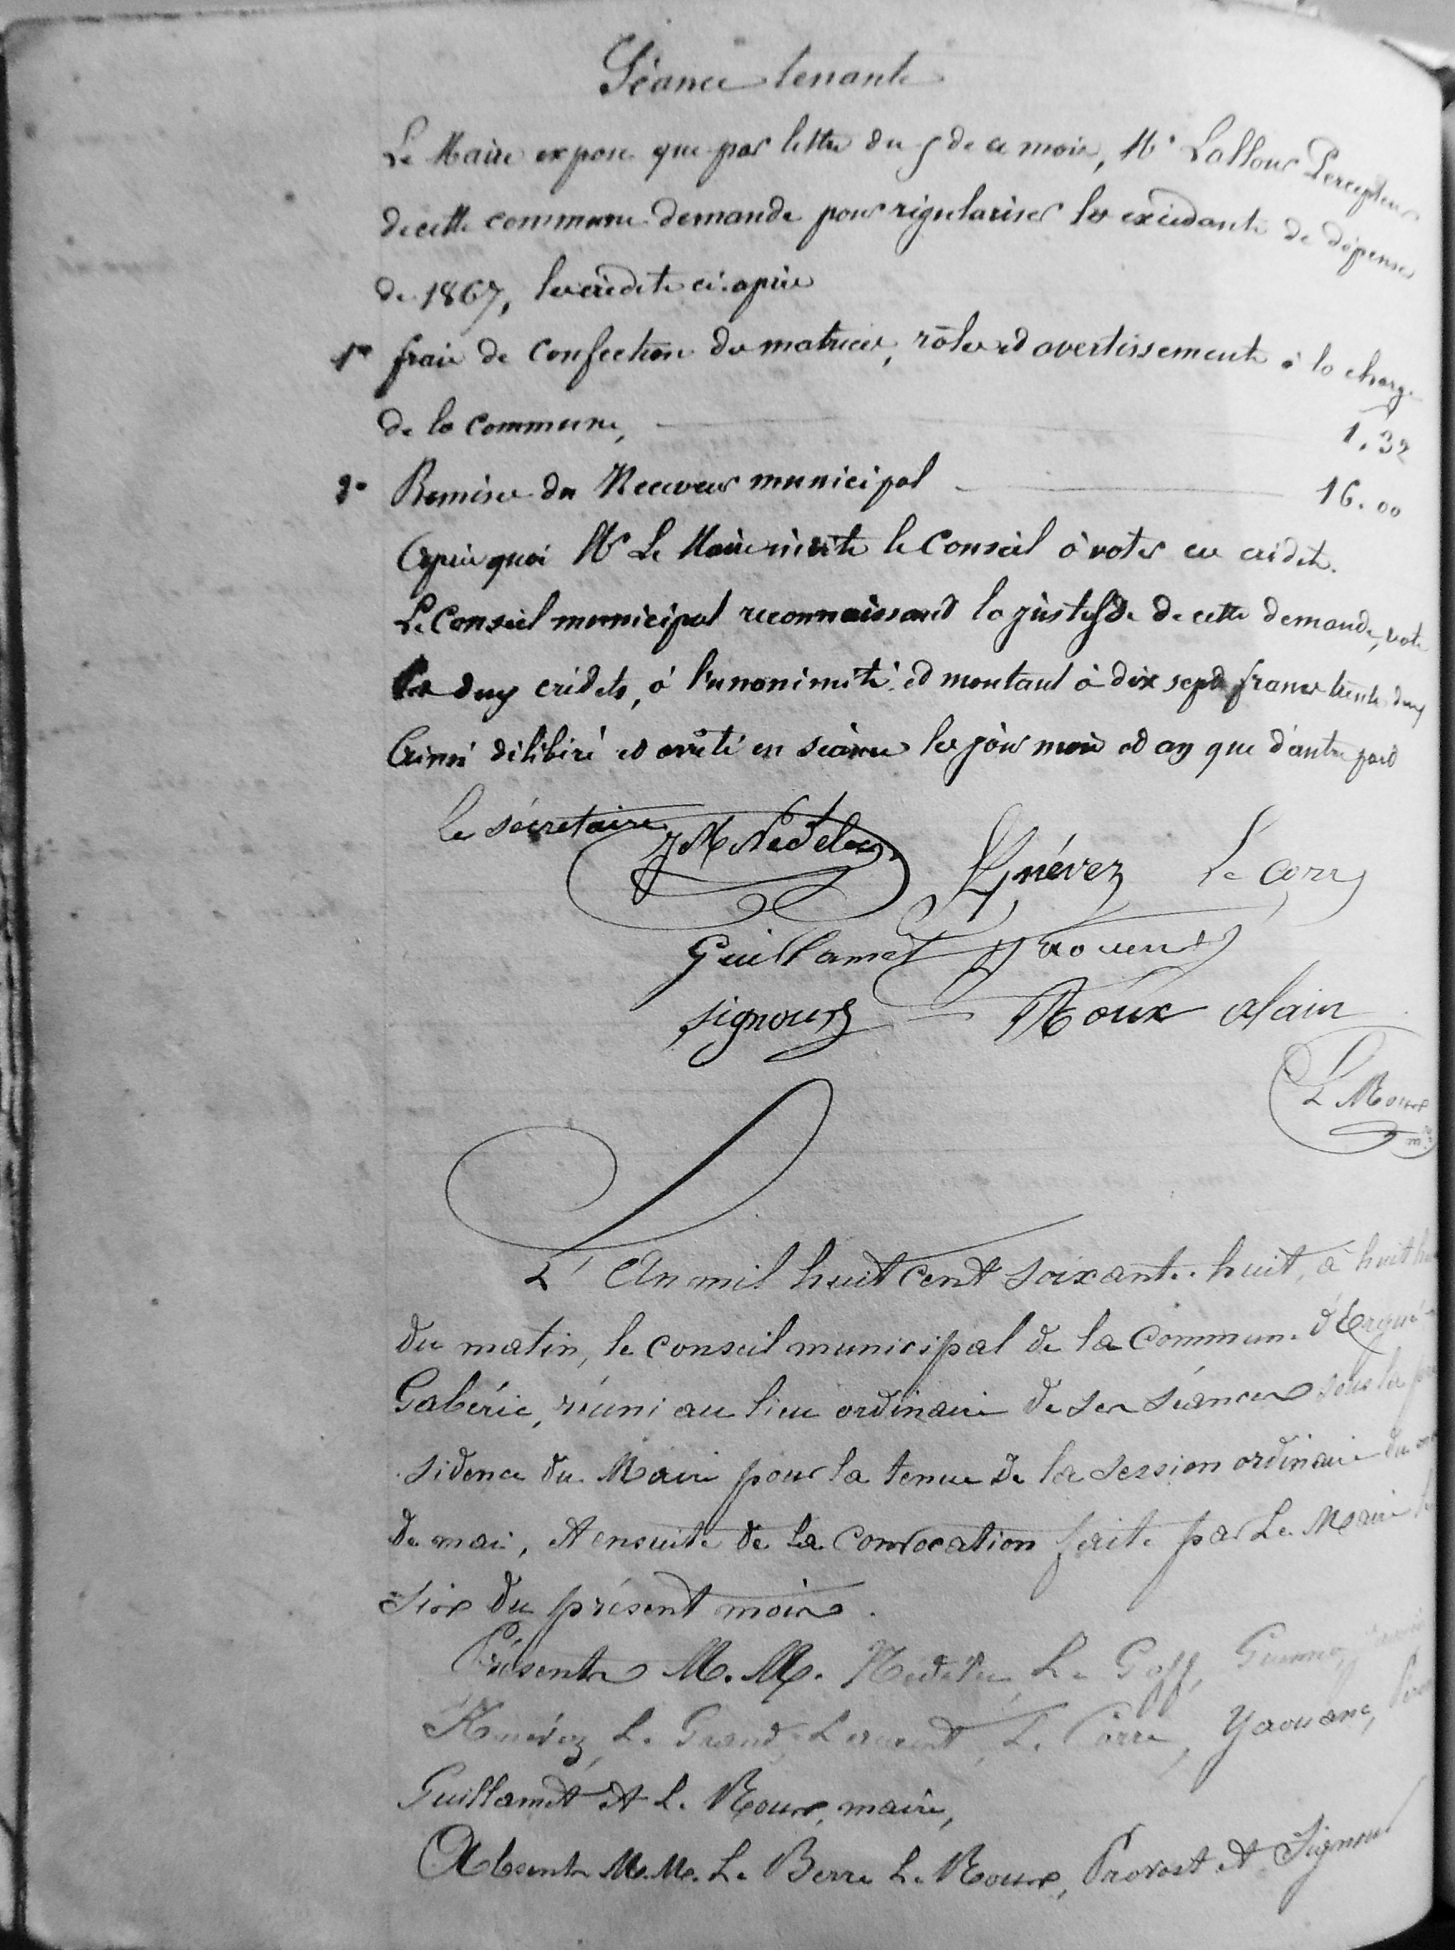 Séance tenante
Le Maire expose que par lettre du 5 de ce mois, Mr Lallour Percepteur
de cette commune demande pour régulariser les excédants de dépenses
de 1867, les crédits ci-après
1° frais de confection des matrices, rôles et avertissements à la charge
de la commune, 1.32
2° Remises du Receveur municipal 16.00
Après quoi Mr Le Maire invite le Conseil à voter ces crédits.
Le Conseil municipal reconnaissant la justesse de cette demande, vote
les deux crédits, à l'unanimité et montant à dix sept francs trente deux
Ainsi délibéré et arrêté en séance les jour mois et an que d'autre part
Le sécretaire JM Nédélec Knévez Le Corre
Guillamet Yaouenc
Signour Roux Alain
L. Roux
L'An mil huit cent soixante-huit, à huit
du matin, le conseil municipal de la Commune d'Ergué-
Gabéric, réuni au lieu ordinaire de ses séances sous la
sidence du Maire pour la tenue de la session ordinaire du
de mai, et ensuite de la convocation faite par Le Maire
six du présent mois.
Présents M.M. Nédélec, Le Goff,
Knévez, Le Grand, Laurent, Le Corre, Yaouanc,
Guillamet et L. Roux, maire,
Absents M.M. Le Berre Le Roux, Provost et Signour